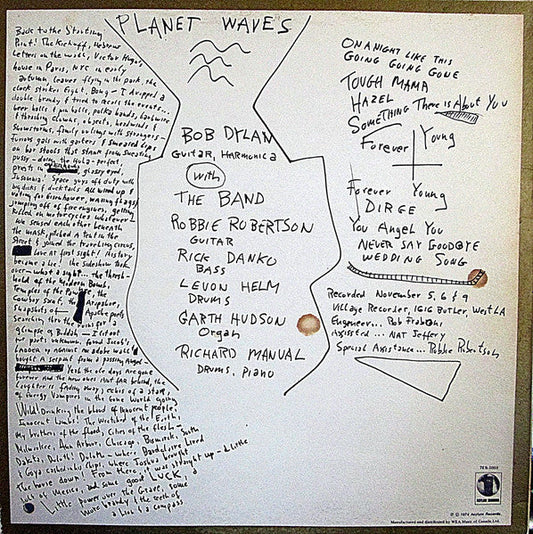 PLANET WAVES
Back to the Starting
Point! The Kickoff, Hebrew
Letters on the wall, Victor Hugo's
house in Paris, NYC in early
autumn, leaves flying in the park, the
clock strikes Eight, Bong— I dropped a
double brandy & tried to recall the events...
beer halls & pin balls, polka bands, barbwire
& thrashing clowns, objects, headwinds &
Snowstorms, family outings with strangers—
Furious gals with garters & smeared lips
on bar stools that stank from sweating
pussy— doing the Hula— perfect,
priests in glassy eyed,
Insomnia! Space guys off duty with
big dicks & ducktails all wired up &
voting for Eisenhower, waving flags &
jumping off of fire engines, getting
killed on motorcycles whatever—
We sensed each other beneath
the mask, pitched a tent in the
Street & joined the traveling circus,
love at first sight! History
became a lie! the sideshow took
over— what a sight... the thresh-
hold of the Modern Bomb,
Temples of the Pawnee, the
Cowboy Saint, the Arapahoe,
Snapshots of Apache poets
Searching thru the ruins for a
glimpse of Buddah— I lit out
for parts unknown, found Jacob's
ladder up against an adobe wall &
bought a serpent from a passing Angel—
Yeah the ole days are gone
forever and the new ones aint far behind, the
Laughter is fading away, echos of a star,
of Energy Vampires in the Gone World going
Wild! Drinking the blood of innocent people,
Innocent lambs! The Wretched of the Earth,
My brothers of the flood, Cities of the flesh—
Milwaukee, Ann Arbor, Chicago, Bismarck, South
Dakota, Duluth! Duluth— where Baudelaire Lived
& Goya cashed in his Chips, where Joshua brought
the house down! From there it was straight up— a little
bit of Mexico, and some good LUCK, a
Little power over the Grave, some
more brandy & the teeth of
a lion & a compass
BOB DYLAN
Guitar, HARMONICA
with
THE BAND
ROBBIE ROBERTSON
GUITAR
RICK DANKO
BASS
LEVON HELM
DRUMS
GARTH HUDSON
Organ
RICHARD MANUAL
DRUMS, Piano
ON A NIGHT LIKE THIS
GOING GOING GONE
TOUGH MAMA
HAZEL
SOMETHING There is About You
Forever Young
Forever Young
DIRGE
You Angel You
NEVER SAY GOODBYE
WEDDING SONG
Recorded November 5, 6 & 9
Village Recorder, 1616 Butler, West LA
Engineer... Rob Fraboni
Assisted... NAT Jeffery
Special Assistance... Robbie Robertson
7ES 1003
ASYLUM RECORDS
℗ © 1974 Asylum Records.
Manufactured and distributed by WEA Music of Canada, Ltd.